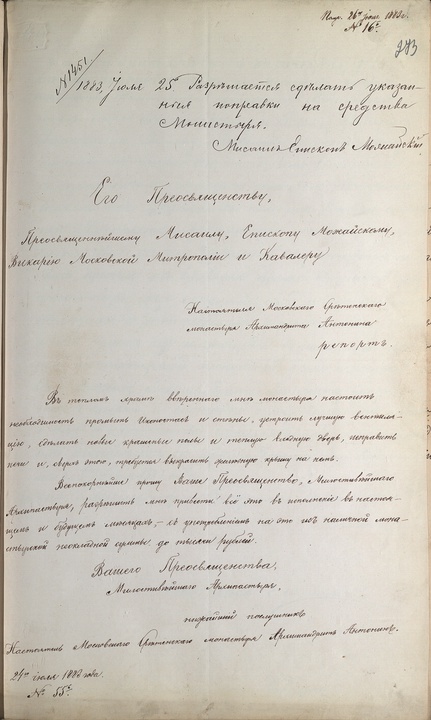 Пол. 26го іюля 1883 г.
№ 16й.
283
№ 1451
1883, Іюля 25. Разрѣшается сдѣлать указан-
ныя поправки на средства
Монастыря.
Мисаилъ Епископъ Можайскій
Его Преосвященству,
Преосвященнѣйшему Мисаилу, Епископу Можайскому,
Викарію Московской Митрополіи и Кавалеру
Настоятеля Московскаго Срѣтенскаго
монастыря Архимандрита Антонина
репортъ.
Въ тепломъ храмѣ ввѣреннаго мнѣ монастыря настоитъ
необходимость промыть Иконостасъ и стѣны, устроить лучшую вентиля-
цію, сдѣлать новые крашеные полы и теплую входную дверь, исправить
печи и, сверхъ этого, требуется выкрасить желѣзную крышу на немъ.
Всепокорнѣйше прошу Ваше Преосвященство, Милостивѣйшаго
Архипастыря, разрѣшить мнѣ привести всё это въ исполненіе въ настоя-
щемъ и будущемъ мѣсяцахъ, съ употребленіемъ на это изъ наличной мона-
стырской неокладной суммы до тысячи рублей.
Вашего Преосвященства,
Милостивѣйшаго Архипастыря,
нижайшій послушникъ
Настоятель Московскаго Срѣтенскаго монастыря Архимандритъ Антонинъ.
24го іюля 1883 года.
№ 55й.